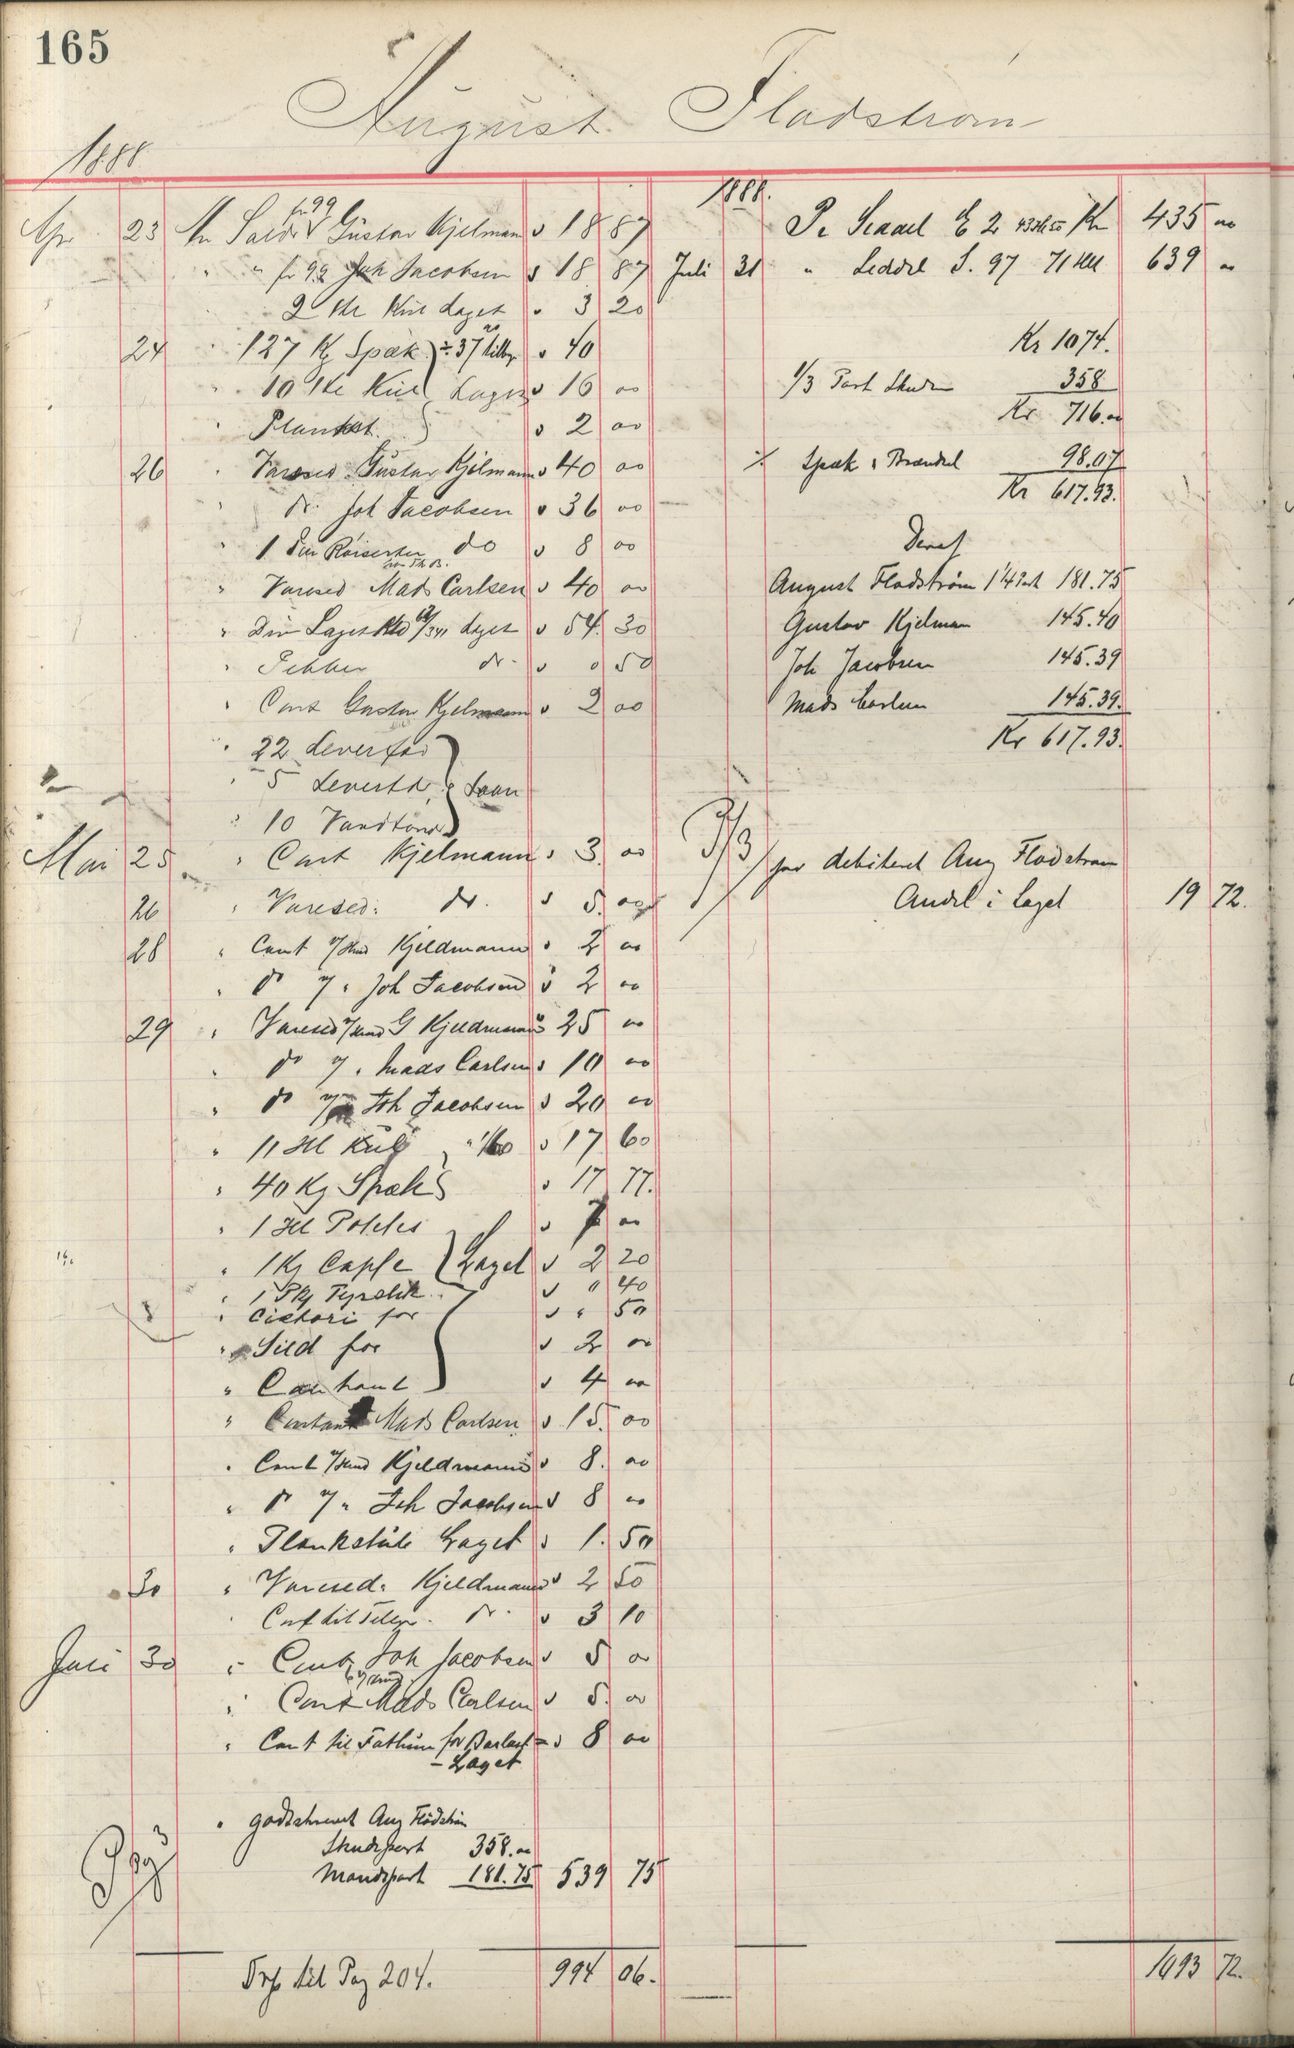 165
August Fladstrøm
1888
Apr 23 An Saldo fr 99 Gustav Kjelman 18 87
" " fr 99 Joh Jacobsen 18 87
2 Kul Laget 3 20
24 " 127 Kg Spæk 40
" 10 Kul Laget 16 00
" Planket 2 00
26 " Varesed Gustav Kjelmann 40 00
" do Joh Jacobsen 36 00
" 1 do 8 00
" Varesed Mads Carlsen 40 00
" Div Laget Laget 54. 30
" Pebber do 0 50
" Cont Gustav Kjelmann 2 00
" 22 Leverfad
" 5 Levertd Laan
" 10 Vandtønd
Mai 25 " Cont Kjelmann 3. 00
26 " Varesed: do 5. 00
28 " Cont Kjeldmann 2 00
" do " Joh Jacobsen 2 00
29 " Varesed G Kjeldmann 25 00
" do " Mads Carlsen 10 00
" do Joh Jacobsen 20 00
" 11 Hl Kul 1/60 17 60
" 40 Kg Spæk 17 77.
" 1 Hl Potetes 00
" 1 Kg Caffe Laget 2 20
" 1 Pk Fyrstik " 40
" Cichori for " 50
" Sild for 2 00
" Contant 4 00
" Contant Mads Carlsen 15. 00
" Cont Kjeldmann 8. 00
" do " Joh Jacobsen 8 00
" Plankstub Laget 1. 50
30 " Varesed: Kjeldmann 2 50
" Cont til Telegr. do 3 10
Juli 30 " Cont Joh Jacobsen 5 00
" Cont Mads Carlsen 5. 00
" Cont til Fathum for Barlast 8 00
- Laget
" godskrevet Aug Flodstrøm
Skudspart 358.00
Mandspart 181.75 539 75
Trsp til Pag 204. 994 06.
1888.
Pr Kr 435 00
Juli 31 " Seddel S. 97 71 Hl 639 00
Kr 1074.
1/3 Part Skuden 358
Kr 716.00
% Spæk & Brændsel 98.07
Kr 617.93.
Deraf
August Flodstrøm 1 1/4 Part 181.75
Gustav Kjelman 145.40
Joh Jacobsen 145.39
Mads Carlsen 145.39.
Kr 617.93.
for debiteret Aug Flodstrøm
Andel i Laget 19 72.
1093 72.